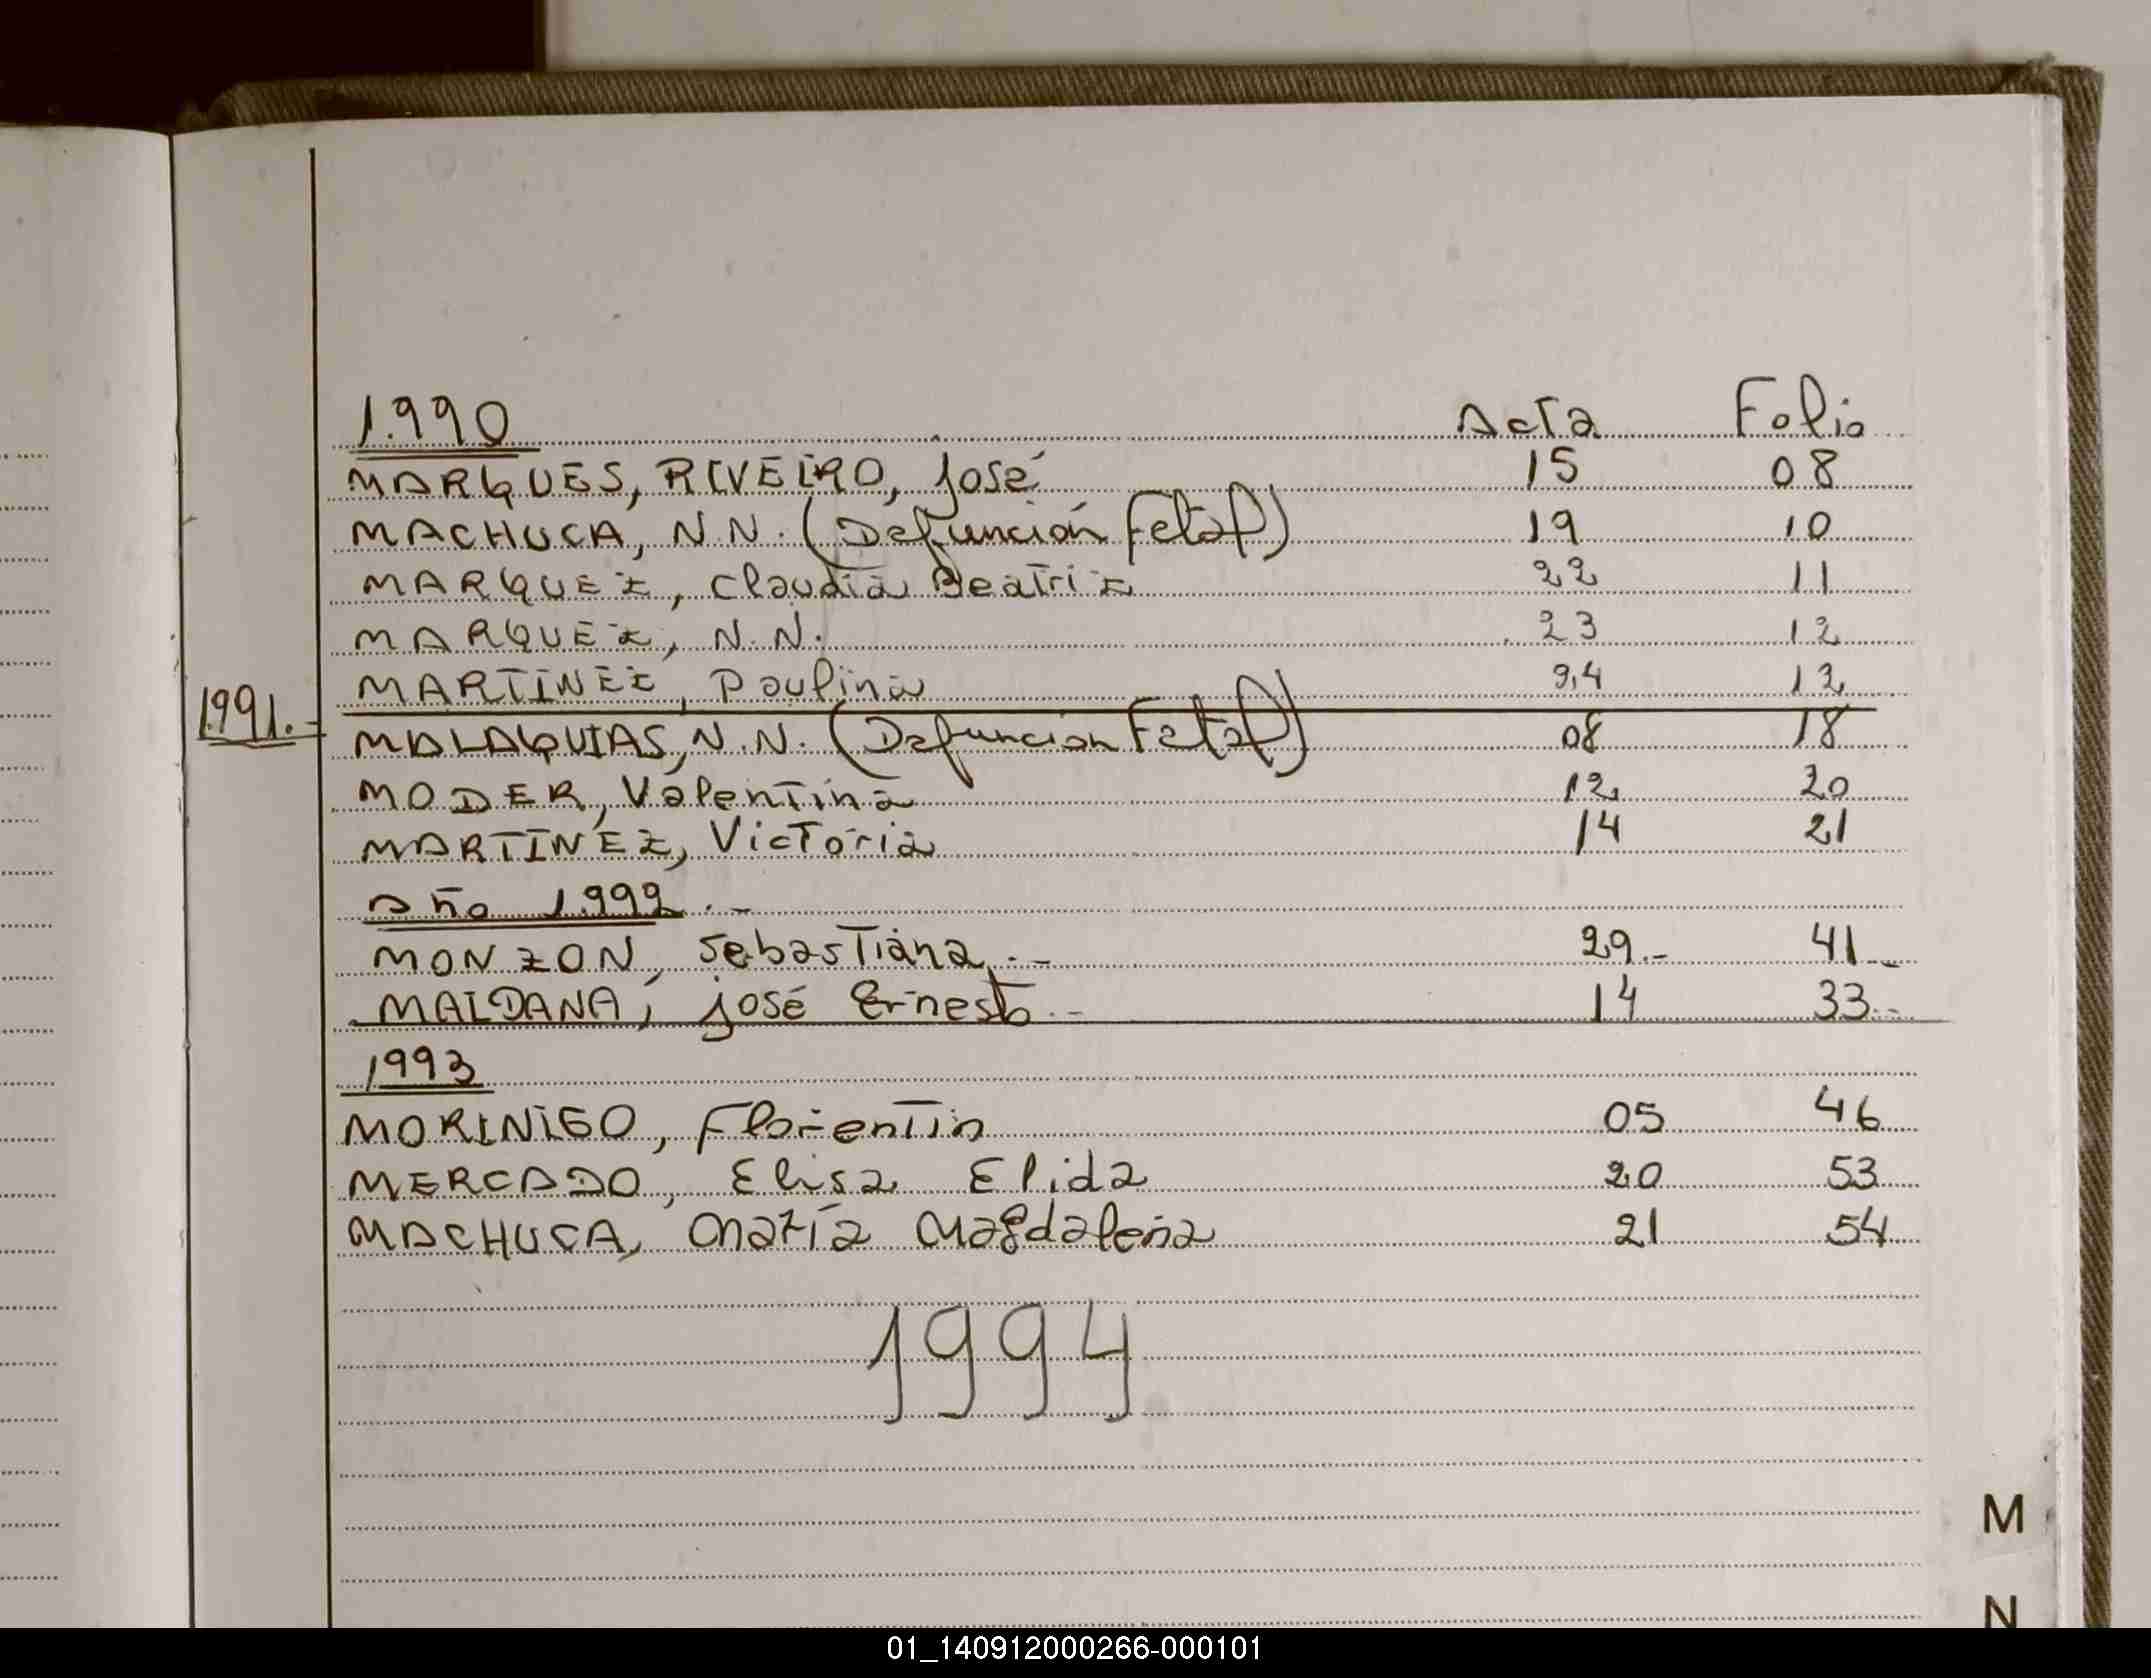 1.990 Acta Folio
MARQUES, RIVEIRO, José 15 08
MACHUCA, N.N. (Defunción Fetal) 19 10
MARQUEZ, Claudia Beatriz 22 11
MARQUEZ, N.N. 23 12
MARTINEZ, Paulina 24 12
1.991.-
MALAQUIAS, N.N. (Defuncion Fetal) 08 18
MODER, Valentina 12 20
MARTINEZ, Victoria 14 21
Año 1.992.-
MONZON, Sebastiana.- 29.- 41-
MALDANA, José Ernesto.- 14 33.-
1993
MORINIGO, Florentin 05 46
MERCADO, Elisa Elida 20 53
MACHUCA, María Magdalena 21 54
1994
M
N
01_140912000266-000101